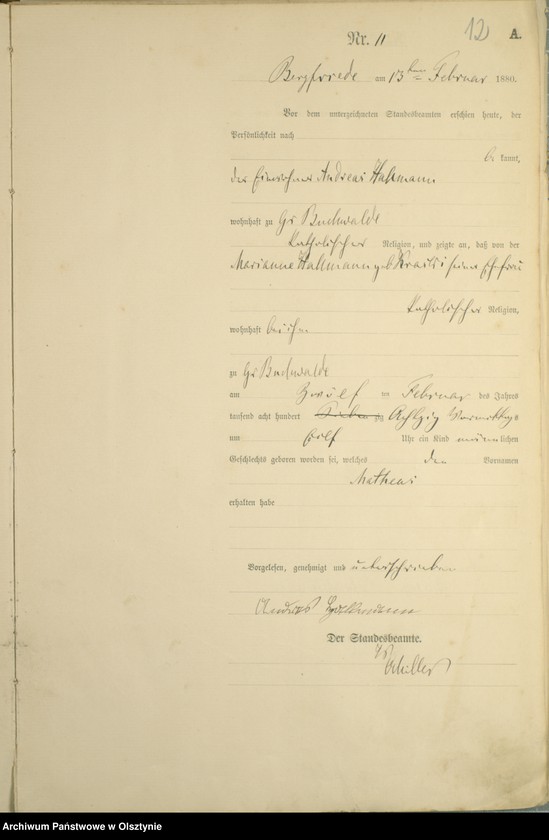 12
Nr. 11 A.
Bergfriede am 13ten Februar 1880.
Vor dem unterzeichneten Standesbeamten erschien heute, der
Persönlichkeit nach
be kannt,
der Einwohner Andreas Hakmann
wohnhaft zu Gr Buchwalde
katholischer Religion, und zeigte an, daß von der
Marianne Hakmann geb seiner Ehefrau
katholischer Religion,
wohnhaft bei ihm
zu Gr Buchwalde
am zwölf ten Februar des Jahres
tausend acht hundert achtzig Vormittags
um elf Uhr ein Kind männlichen
Geschlechts geboren worden sei, welches den Vornamen
Matheus
erhalten habe
Vorgelesen, genehmigt und unterschrieben
Andreas
Der Standesbeamte.
Schiller
Archiwum Państwowe w Olsztynie